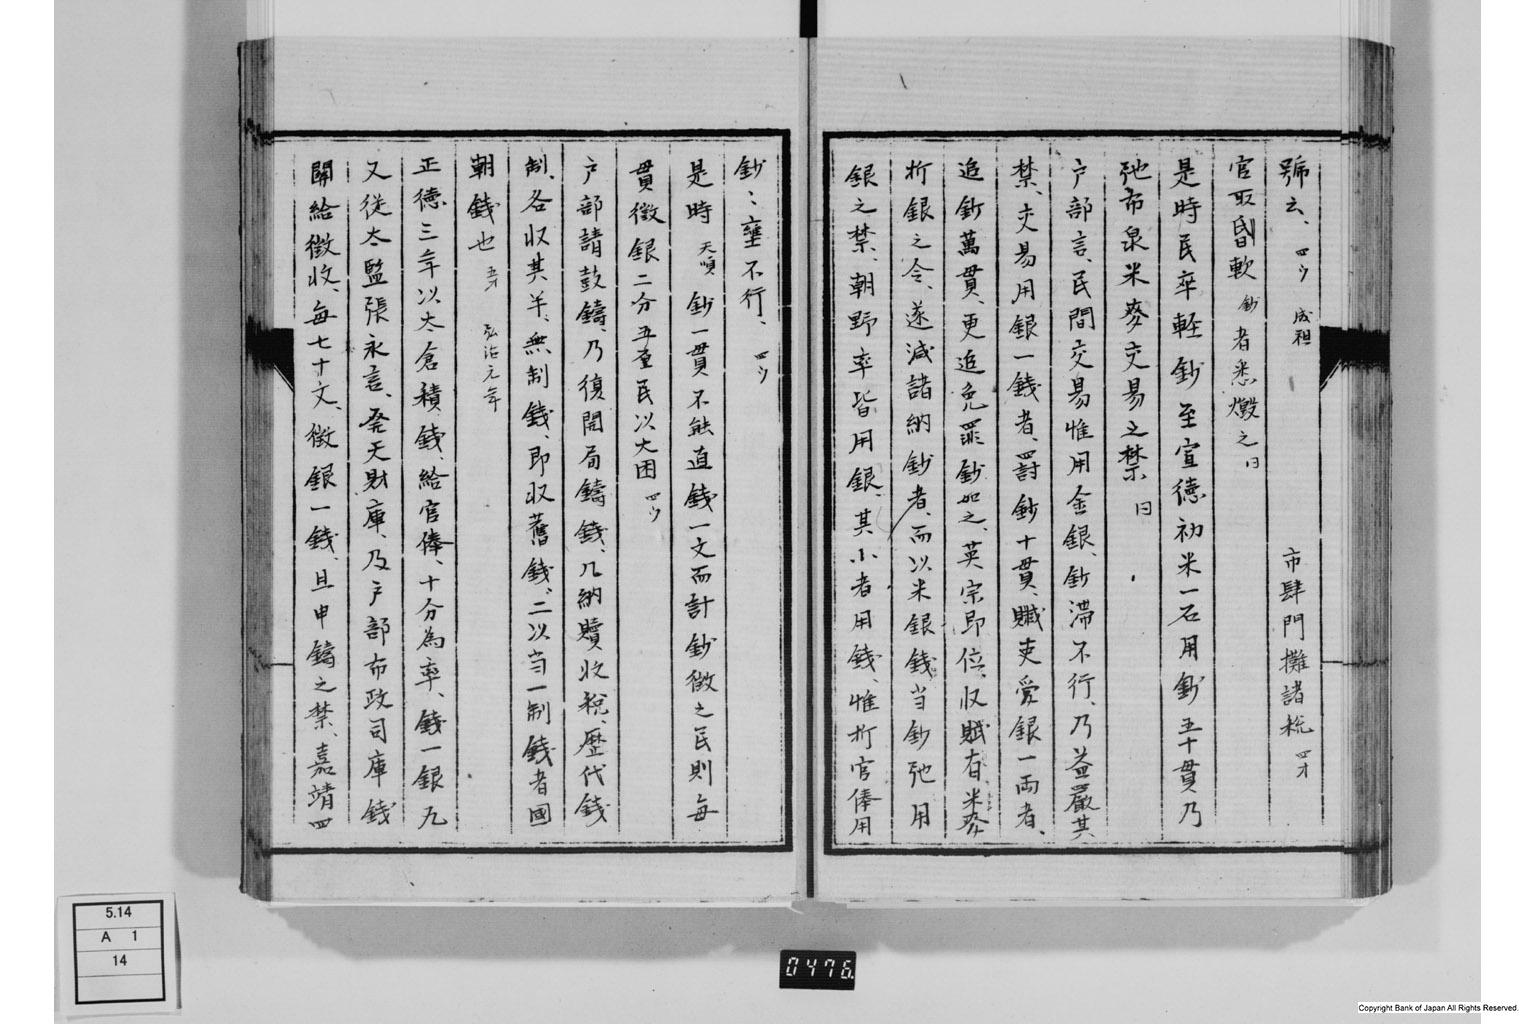 號云、四ウ 成祖 市肆門攤諸税 四才
官取昏軟鈔者悉燬之 曰
是時民卒軽鈔至宣德初米一石用鈔五十貫乃
弛布泉米麥交易之禁 曰
戶部言、民間交易惟用金銀、鈔滞不行、乃益嚴其
禁、交易用銀一錢者、罰鈔十貫、贓吏受銀一両者、
追鈔萬貫、更追免罪鈔如之、英宗即位、収賦有米麥
折銀之令、遂減諸納鈔者、而以米銀錢当鈔弛用
銀之禁、朝野率皆用銀、其小者用錢、惟折官俸用
鈔、壅不行、四ウ
是時 天順 鈔一貫不能直錢一文而計鈔徴之民則毎
貫徴銀二分五釐民以大困 四ウ
戶部請鼓鑄、乃復開局鑄錢、凡納贖收税、歴代錢
制、各収其半、無制錢、即収舊錢、二以当一制錢者國
朝錢也 五才 弘治元年
正德三年以太倉積錢給官俸、十分為率、錢一銀九
又従太監張永言、發天財庫、及戶部布政司庫錢
關給徴收、毎七十文、徴銀一錢、且申鑄之禁、嘉靖四
5.14
A 1
14
0476.
Copyright Bank of Japan All Rights Reserved.